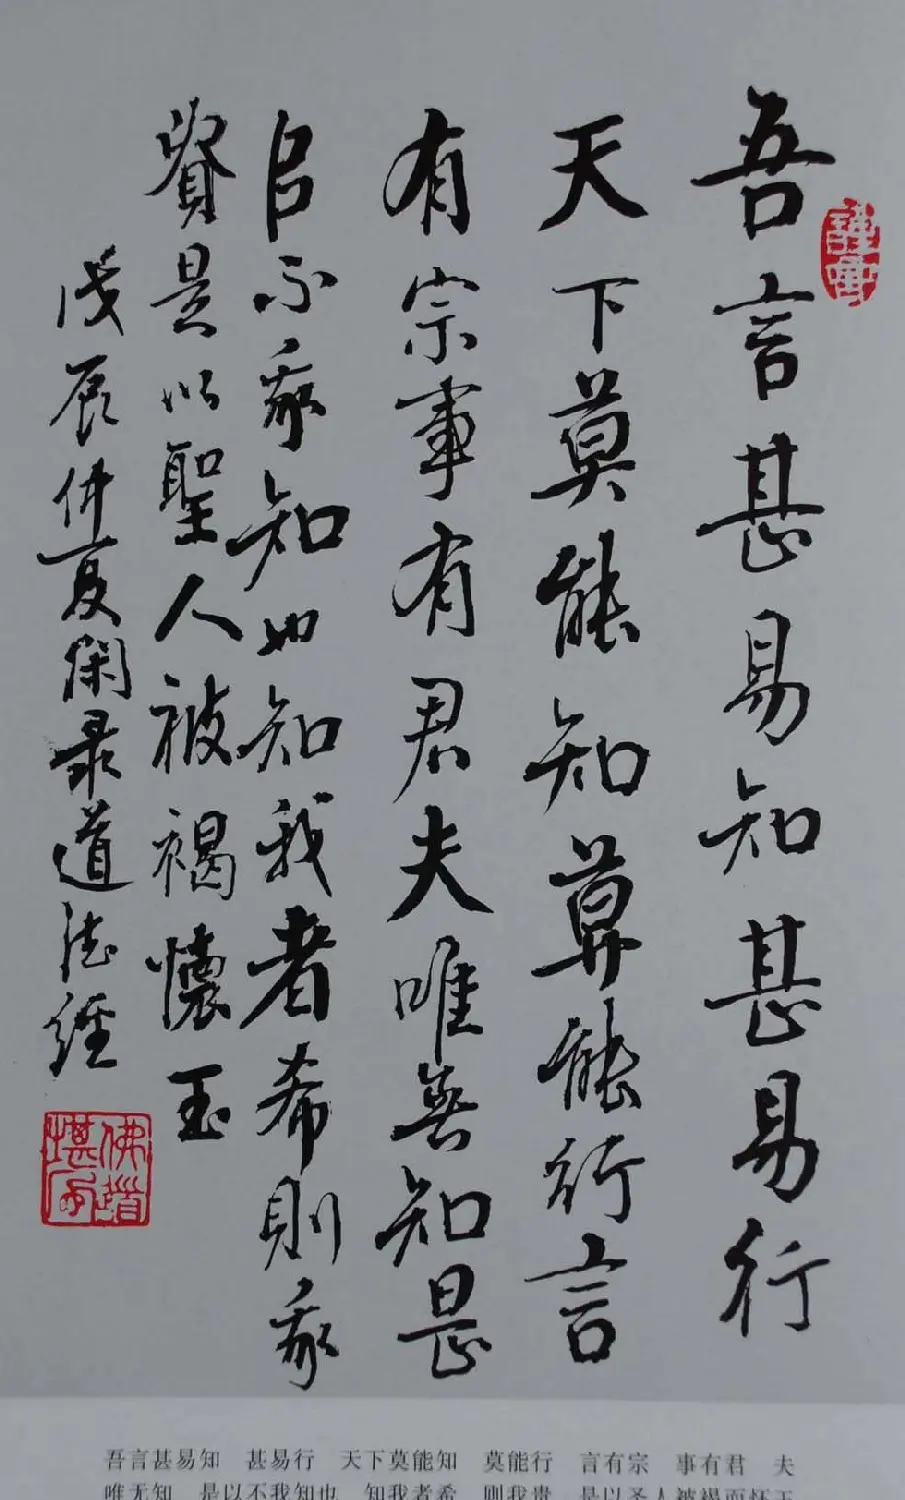 吾言甚易知甚易行
天下莫能知莫能行言
有宗事有君夫唯無知是
㠯不我知也知我者希則我
貴是以聖人被褐懷玉
戊辰仲夏閑录道德經
吾言甚易知 甚易行 天下莫能知 莫能行 言有宗 事有君 夫
唯无知 是以不我知也 知我者希 则我贵 是以圣人被褐而怀玉